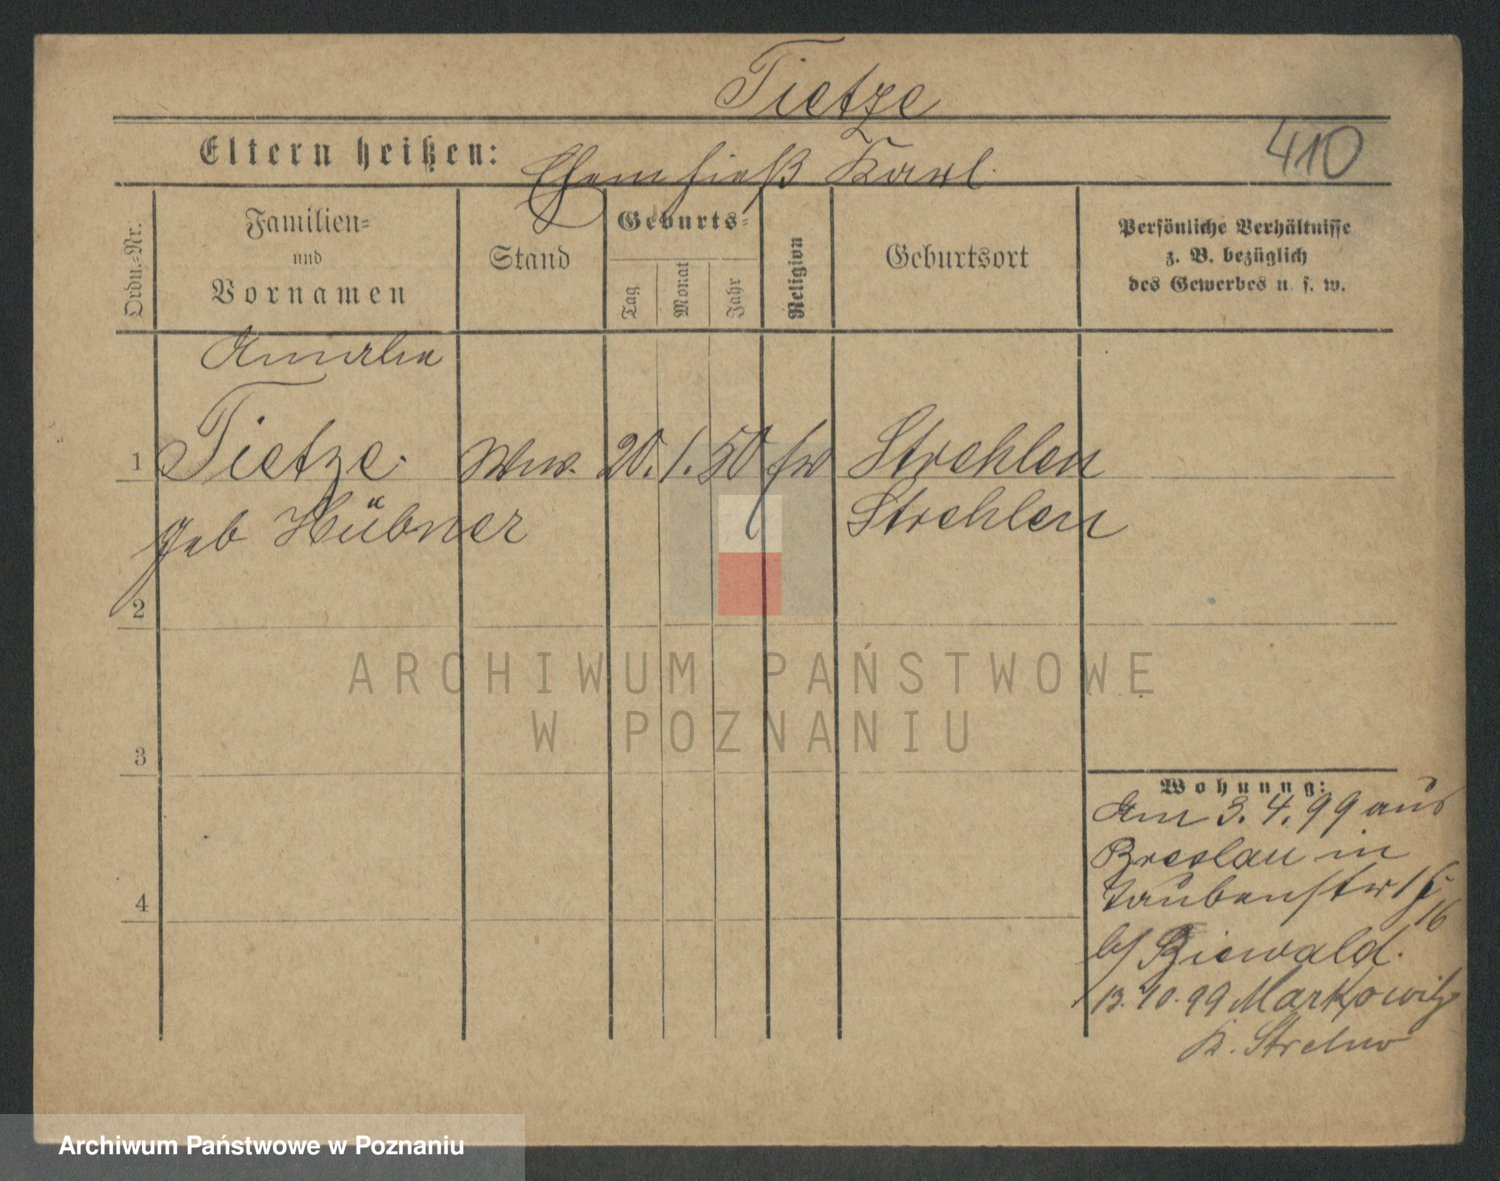 Tietze
410
Eltern heißen: Ehem hieß Karl.
Ordn.-Nr.
Familien-
und
Vornamen
Stand
Geburts-
Tag
Monat
Jahr
Religion
Geburtsort
Persönliche Verhältnisse
z. B. bezüglich
des Gewerbes u. s. w.
Amalie
1 Tietze. Ww. 20. 1. 50 Strehlen
geb Hübner Strehlen
2
3
4
Wohnung:
Am 3. 4. 99 aus
Breslau in
Taubenstr 15
16
b/ Biewald.
13. 10. 99 Markowitz
K. Strelno
ARCHIWUM PAŃSTWOWE
W POZNANIU
Archiwum Państwowe w Poznaniu